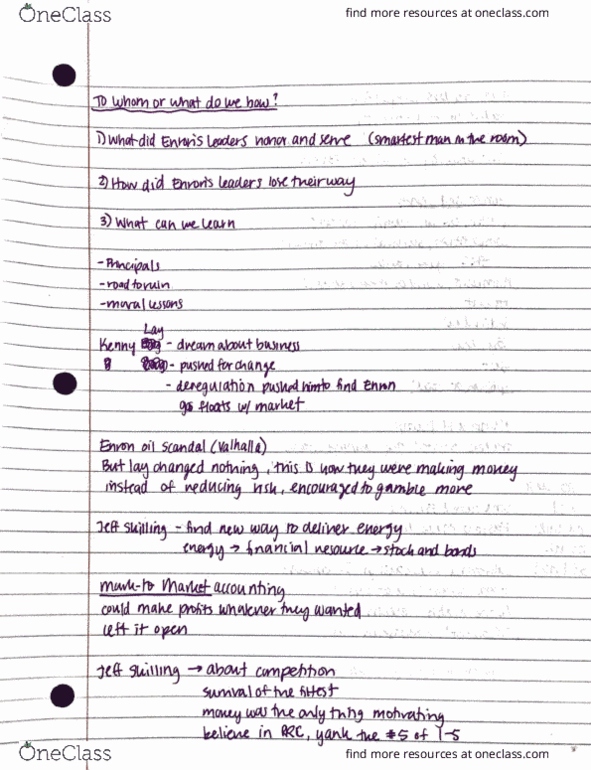 OneClass
find more resources at oneclass.com
To whom or what do we bow?
1) What did Enron's leaders honor and serve (smartest man in the room)
2) How did Enron's leaders lose their way
3) What can we learn
- Principals
- road to ruin
- moral lessons
Lay
Kenny - dream about business
- pushed for change
- deregulation pushed him to find Enron
gas floats w/ market
Enron oil scandal (Valhalla)
But lay changed nothing, this is how they were making money
instead of reducing risk, encouraged to gamble more
Jeff Skilling - find new way to deliver energy
energy → financial resource → stock and bonds
Mark-to Market accounting
could make profits whatever they wanted
left it open
Jeff Skilling → about competition
survival of the fittest
money was the only thing motivating
believe in PRC, yank the #5 of 1-5
OneClass
find more resources at oneclass.com